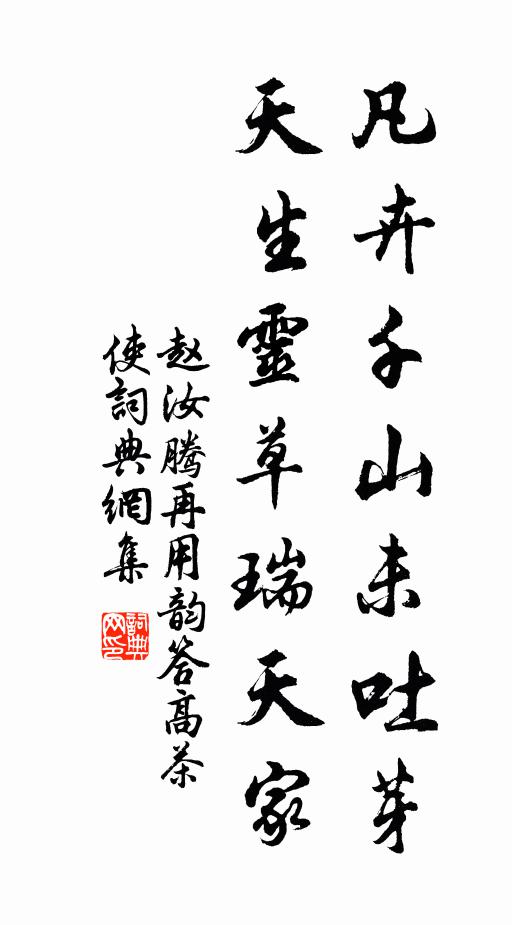 凡卉千山未吐芽
天生靈草瑞天家
赵汝腾再用韵答高茶
使詞典網集
詞典
网印